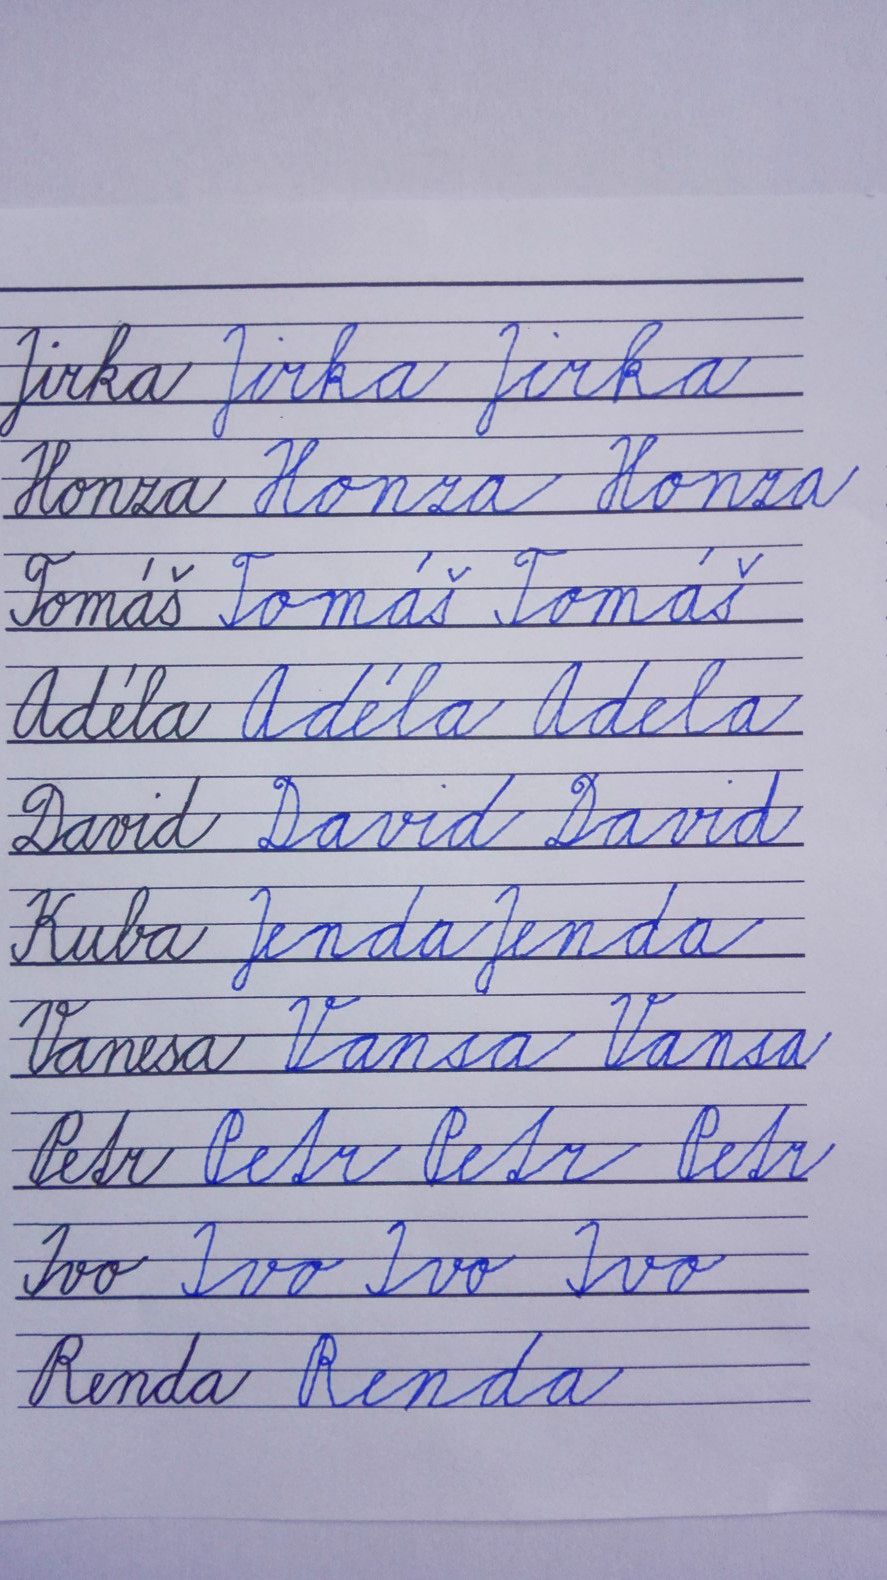 Jirka Jirka Jirka
Honza Honza Honza
Tomáš Tomáš Tomáš
Adéla Adéla Adela
David David David
Kuba Jenda Jenda
Vanesa Vansa Vansa
Petr Petr Petr Petr
Ivo Ivo Ivo Ivo
Renda Renda